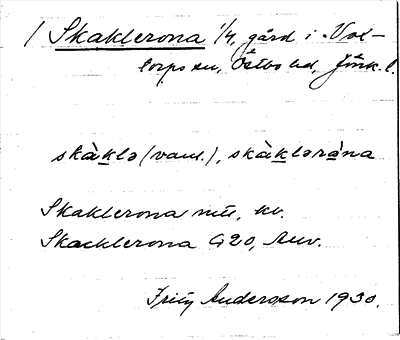 / Skaklerona 1/4, gård i Vol-
torps sn, Östbo hd, Jönk. l.
skàklə (vanl.), skàkləråna
Skaklerona mtl, kv.
Skacklerona G20,
Fritz Anderson 1930.